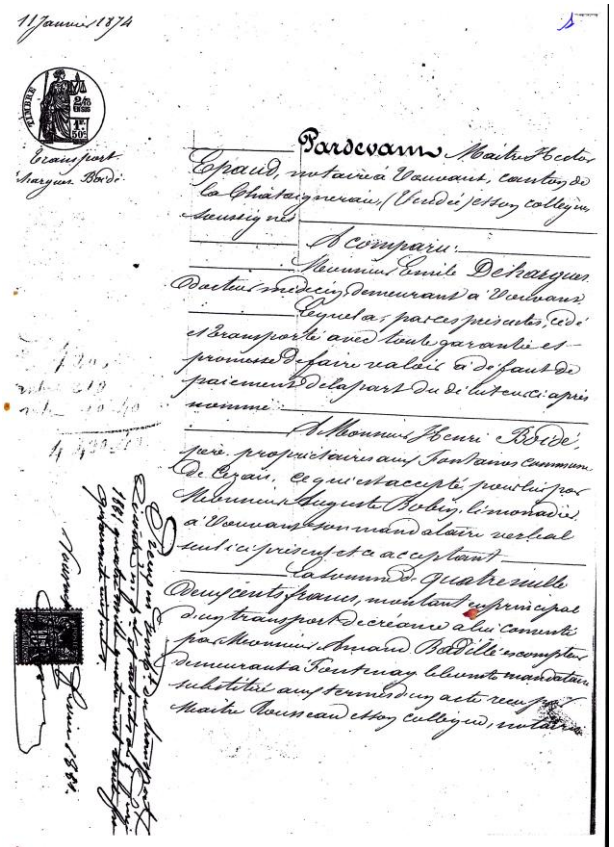 11 Janvier 1874
TIMBRE
1f
50c
Transport
Charques Boidé
Pardevant Maitre Hector
Epaud, notaire à Vouvant, canton de
la Châtaigneraie (Vendée) et son collègue,
soussignés
A comparu:
Monsieur Emile Decharques
Docteur médecin, demeurant à Vouvant.
Lequel a, par ces présentes, cédé
et transporté avec toute garantie et
promesse de faire valoir à défaut de
paiement de la part du débiteur ci après
nommé
A Monsieur Henri Boidé,
père, propriétaire aux Fontaines commune
de Cezais, ce qui est accepté pour lui par
Monsieur Auguste Bobin, limonadier
à Vouvant son mandataire verbal
seul ici présent et ce acceptant
La somme de quatre mille
deux cents francs, montant en principal
d'un transport de créance à lui consenti
par Monsieur Armand Badille escompteur
demeurant à Fontenay le Comte mandataire
substitué aux termes d'un acte reçu par
Maitre Rousseau et son collègue, notaires
1881